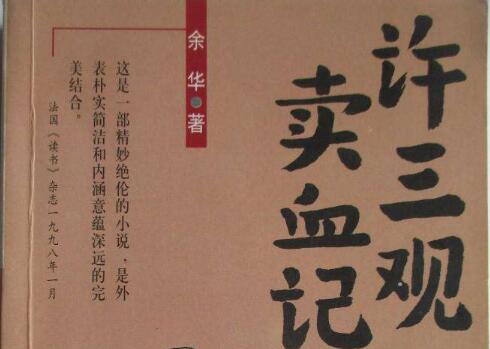 许三观
卖血记
余华 著
这是一部精妙绝伦的小说，是外
表朴实简洁和内涵意蕴深远的完
美结合。
法国《读书》杂志一九九八年一月